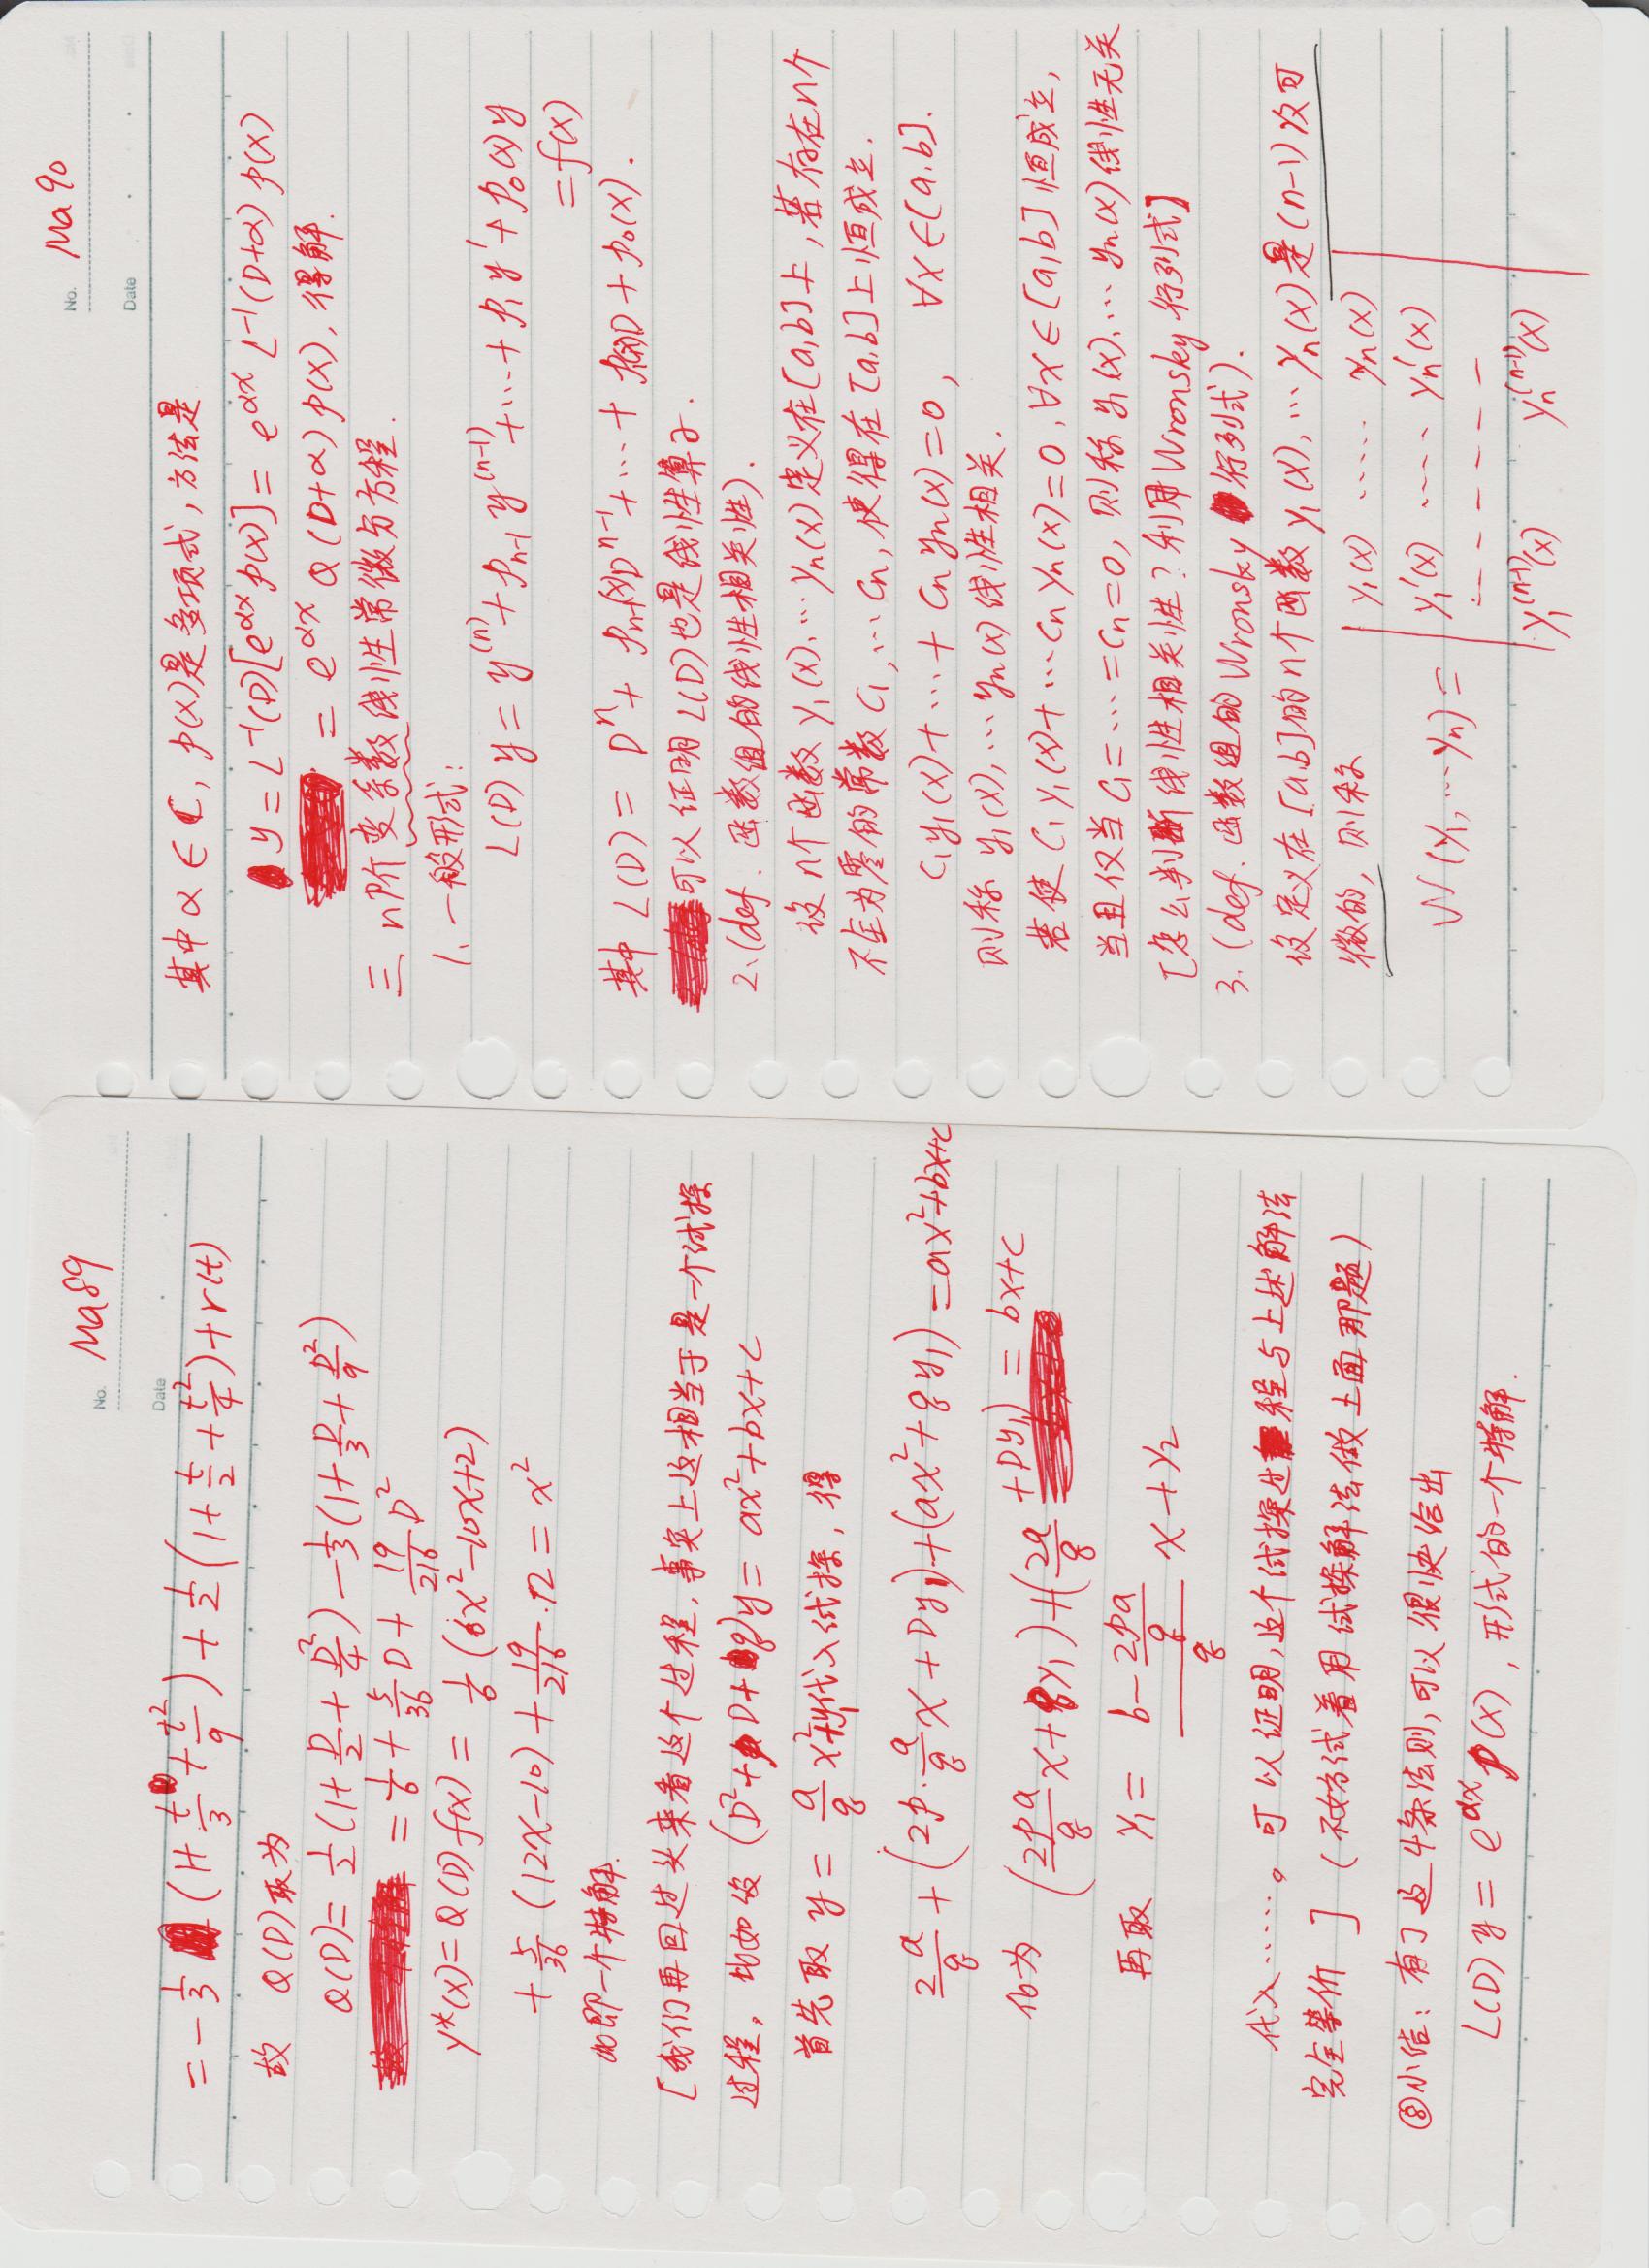 No. Ma89
Date
= -1/3 (1+ t/3 + t²/9) + 1/2 (1+ t/2 + t²/4) + r(t)
故 Q(D)取为
Q(D)= 1/2 (1+ D/2 + D²/4) - 1/3 (1+ D/3 + D²/9)
= 1/6 + 5/36 D + 19/216 D²
y*(x)= Q(D) f(x) = 1/6 (6x²-10x+2)
+ 5/36 (12x-10) + 19/216 ·12 = x²
即一个特解.
[我们再回过头来看这个过程,事实上这相当于是一个试探
过程, 比如设 (D²+pD+q)y= ax²+bx+c
首先取 y = a/q x²+y₁代入试探, 得
2a/q + (2p·a/q x + Dy₁)+(ax²+qy₁) =ax²+bx+c
化为 (2pa/q x+qy₁)+(2a/q +Dy₁) = bx+c
再取 y₁= (b- 2pa/q)/q x+y₂
代入……。可以证明,这个试探过程与上述解法
完全等价 ] (不妨试着用试探解法做上面那题)
⑧小结: 有了这4条法则,可以很快给出
L(D) y = e^{αx} p(x), 形式的一个特解.
No. Ma90
Date
其中 α∈ℂ, p(x)是多项式, 方法是
y = L⁻¹(D)[e^{αx} p(x)] = e^{αx} L⁻¹(D+α) p(x)
= e^{αx} Q(D+α) p(x), 得解.
三. n阶变系数线性常微分方程.
1. 一般形式:
L(D) y = y⁽ⁿ⁾+ pₙ₋₁ y⁽ⁿ⁻¹⁾+…+ p₁ y′+ p₀(x) y
= f(x)
其中 L(D) = Dⁿ+ pₙ₋₁(x)Dⁿ⁻¹+…+ p₁(x)D + p₀(x).
可以证明L(D)也是线性算子.
2. (def. 函数组的线性相关性).
设n个函数 y₁(x),…yₙ(x)定义在[a,b]上,若存在n个
不全为零的常数 c₁,…cₙ,使得在[a,b]上恒成立.
c₁y₁(x)+…+ cₙyₙ(x)=0, ∀x∈[a,b].
则称 y₁(x),…yₙ(x)线性相关.
若使 c₁y₁(x)+…cₙyₙ(x)=0,∀x∈[a,b]恒成立,
当且仅当 c₁=…=cₙ=0, 则称 y₁(x),…yₙ(x)线性无关
[怎么判断线性相关性?利用Wronsky行列式]
3. (def. 函数组的Wronsky行列式).
设定义在[a,b]的n个函数 y₁(x),…yₙ(x)是(n-1)次可
微的, 则称
W(y₁,…yₙ) = | y₁(x) ····· yₙ(x) |
y₁′(x) ····· yₙ′(x)
- - - - - - -
y₁⁽ⁿ⁻¹⁾(x) yₙ⁽ⁿ⁻¹⁾(x)